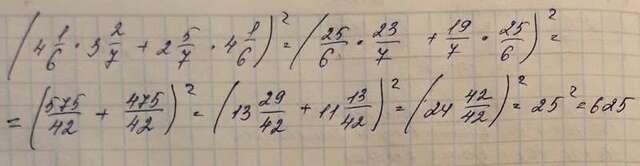 (4 1/6 · 3 2/7 + 2 5/7 · 4 1/6)² = (25/6 · 23/7 + 19/7 · 25/6)² =
= (575/42 + 475/42)² = (13 29/42 + 11 13/42)² = (24 42/42)² = 25² = 625